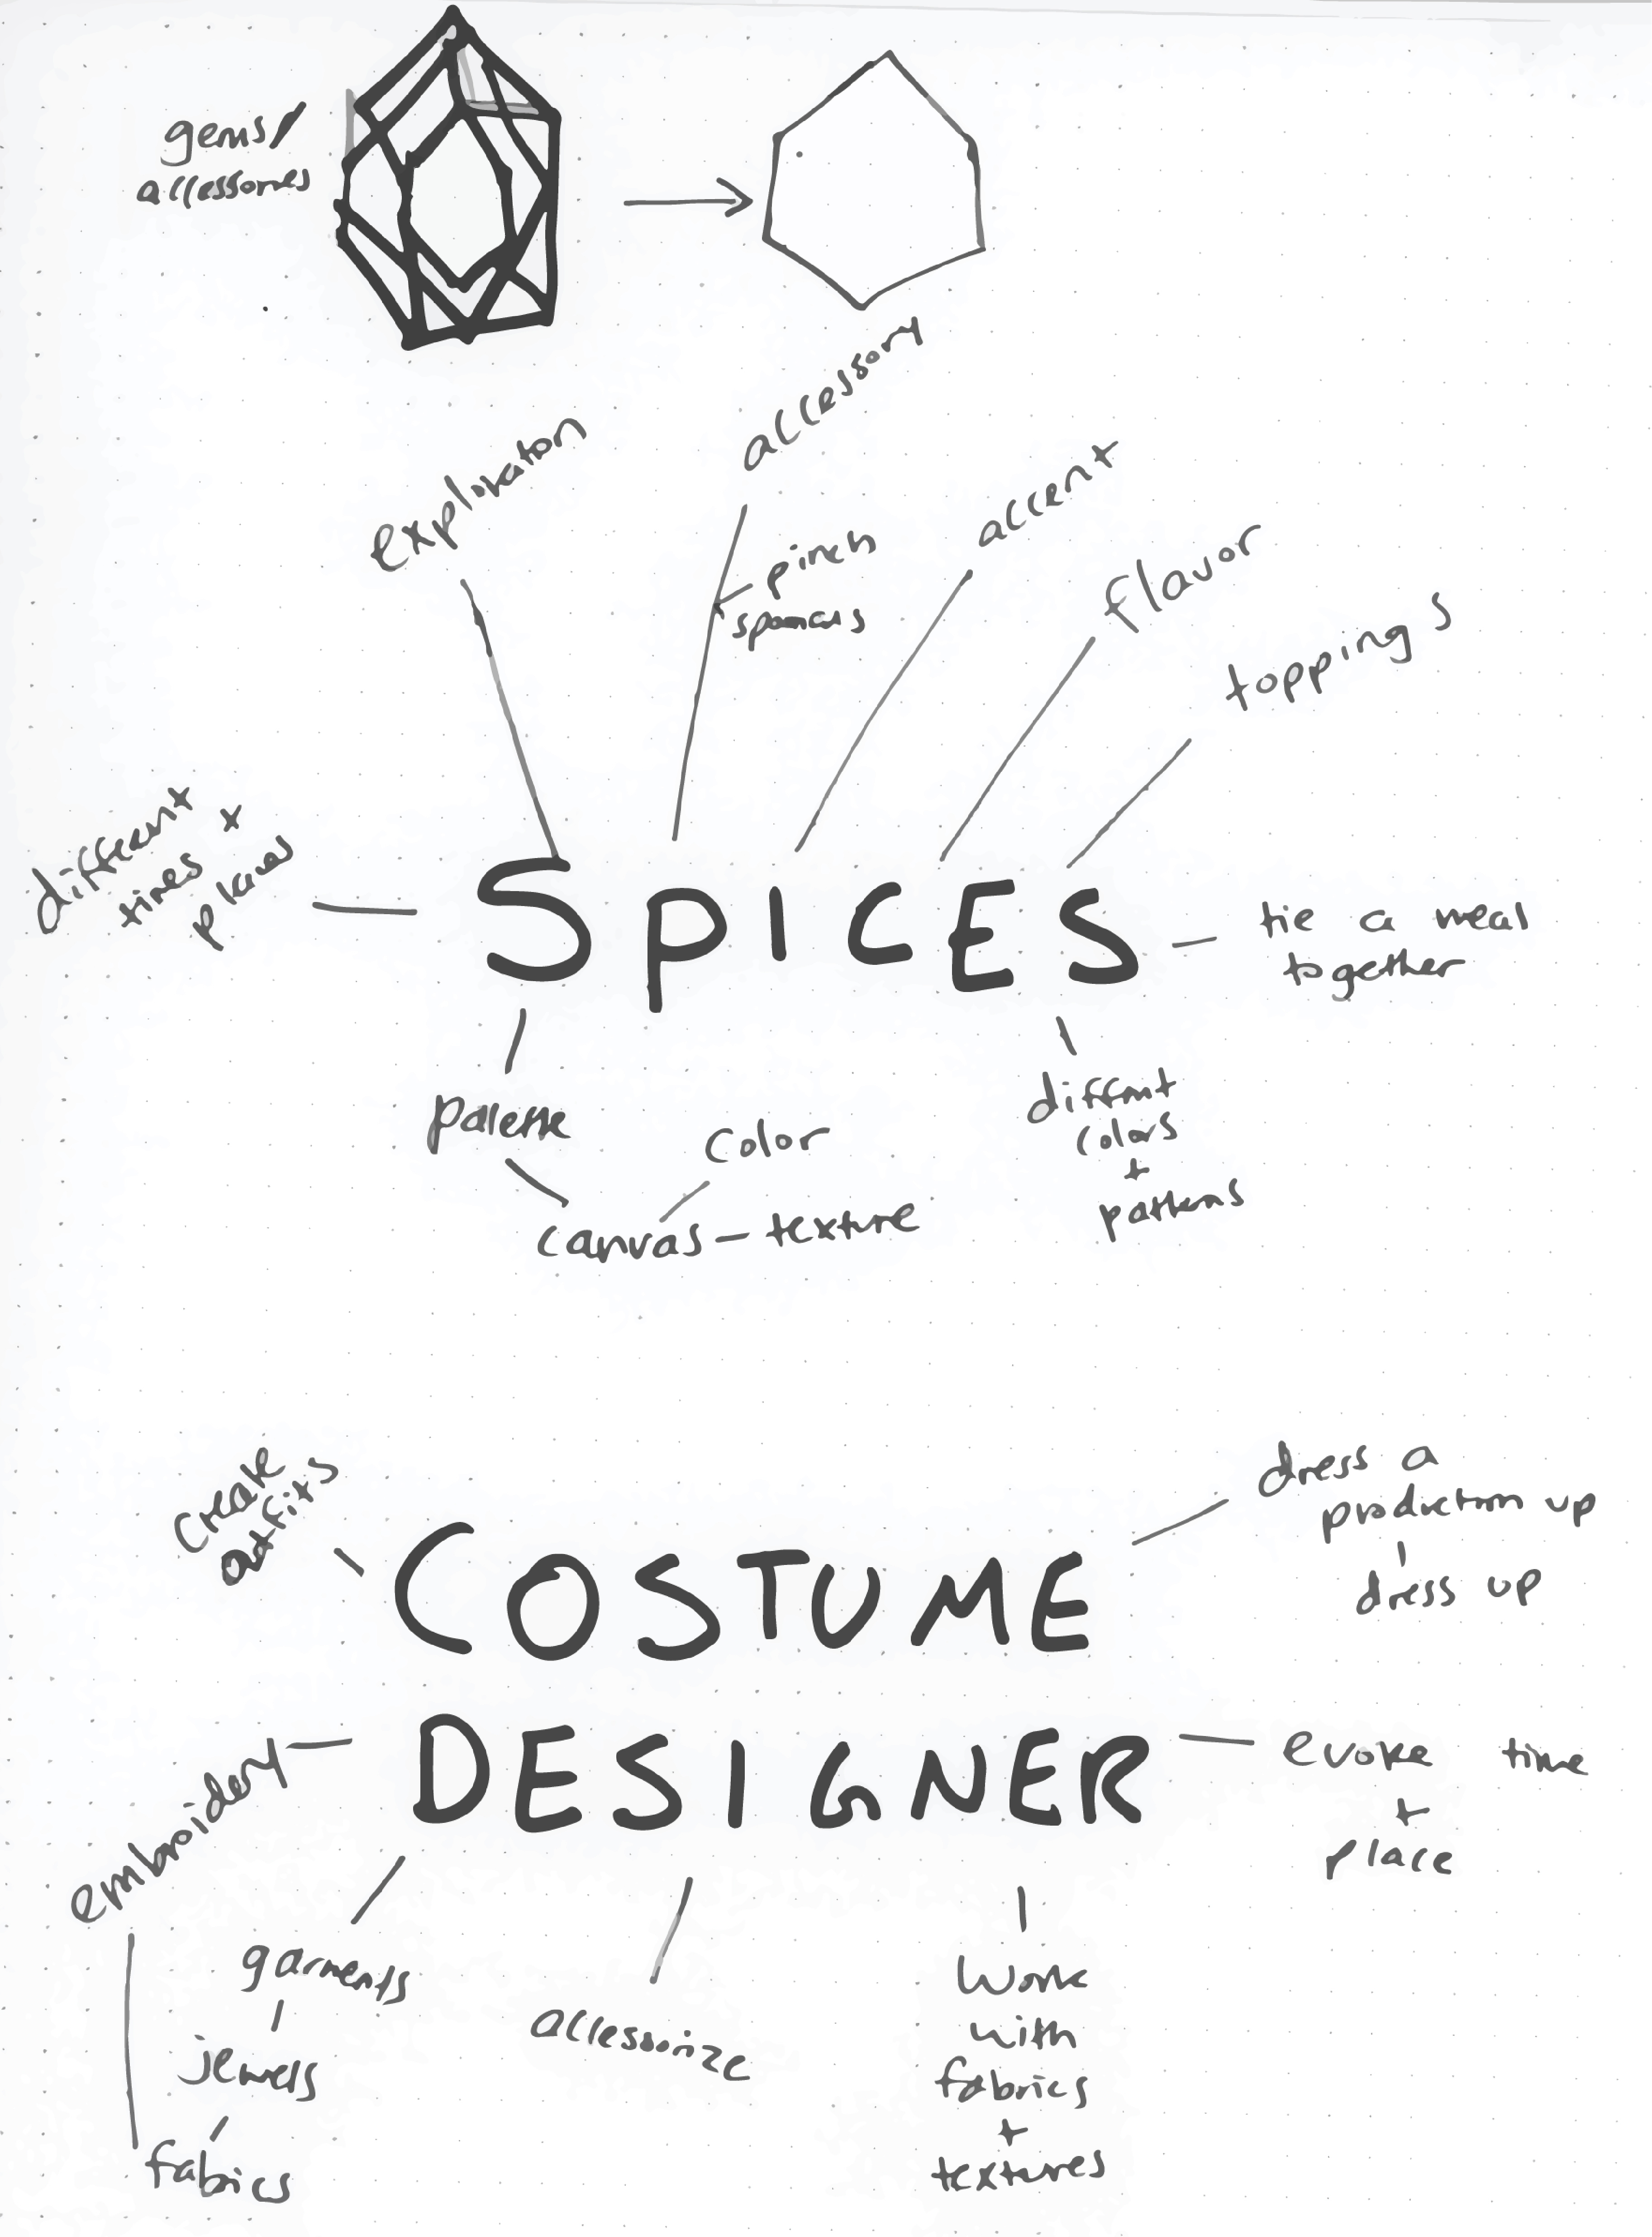 gems/
accessories
accessory
exploration
accent
pinch
flavor
toppings
different
times +
places
SPICES
tie a meal
together
palette
color
canvas - texture
different
colors
+
patterns
create
outfits
dress a
production up
dress up
COSTUME
DESIGNER
evoke time
+
place
embroidery
garments
jewels
fabrics
accessorize
work
with
fabrics
+
textures